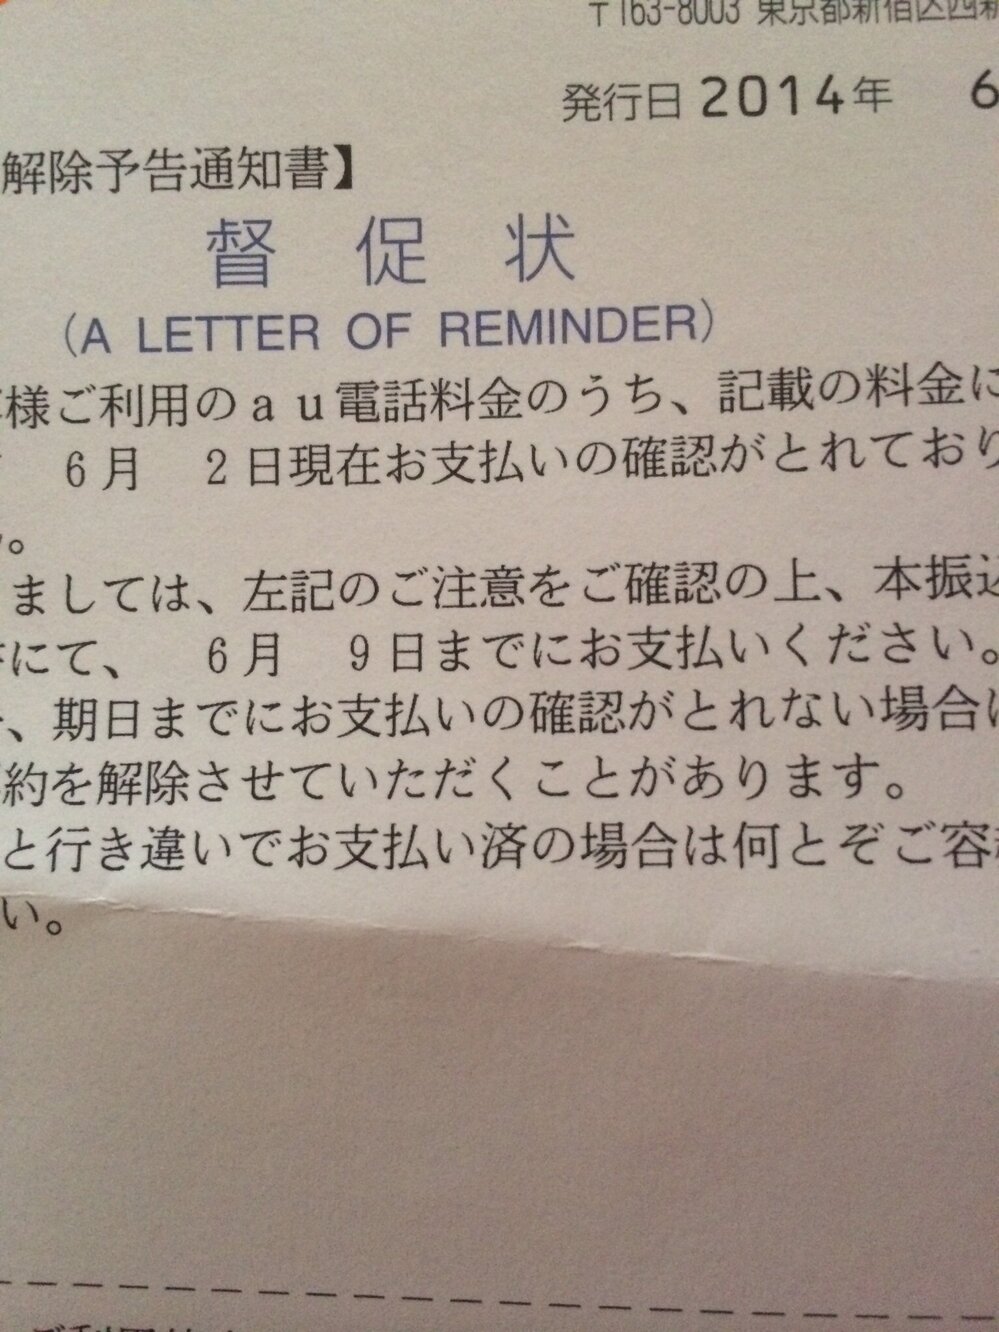 〒163-8003 東京都新宿区西新
発行日 2014年 6
解除予告通知書】
督促状
(A LETTER OF REMINDER)
様ご利用のau電話料金のうち、記載の料金に
6月 2日現在お支払いの確認がとれており
。
ましては、左記のご注意をご確認の上、本振込
にて、 6月 9日までにお支払いください。
、期日までにお支払いの確認がとれない場合は
約を解除させていただくことがあります。
と行き違いでお支払い済の場合は何とぞご容
い。